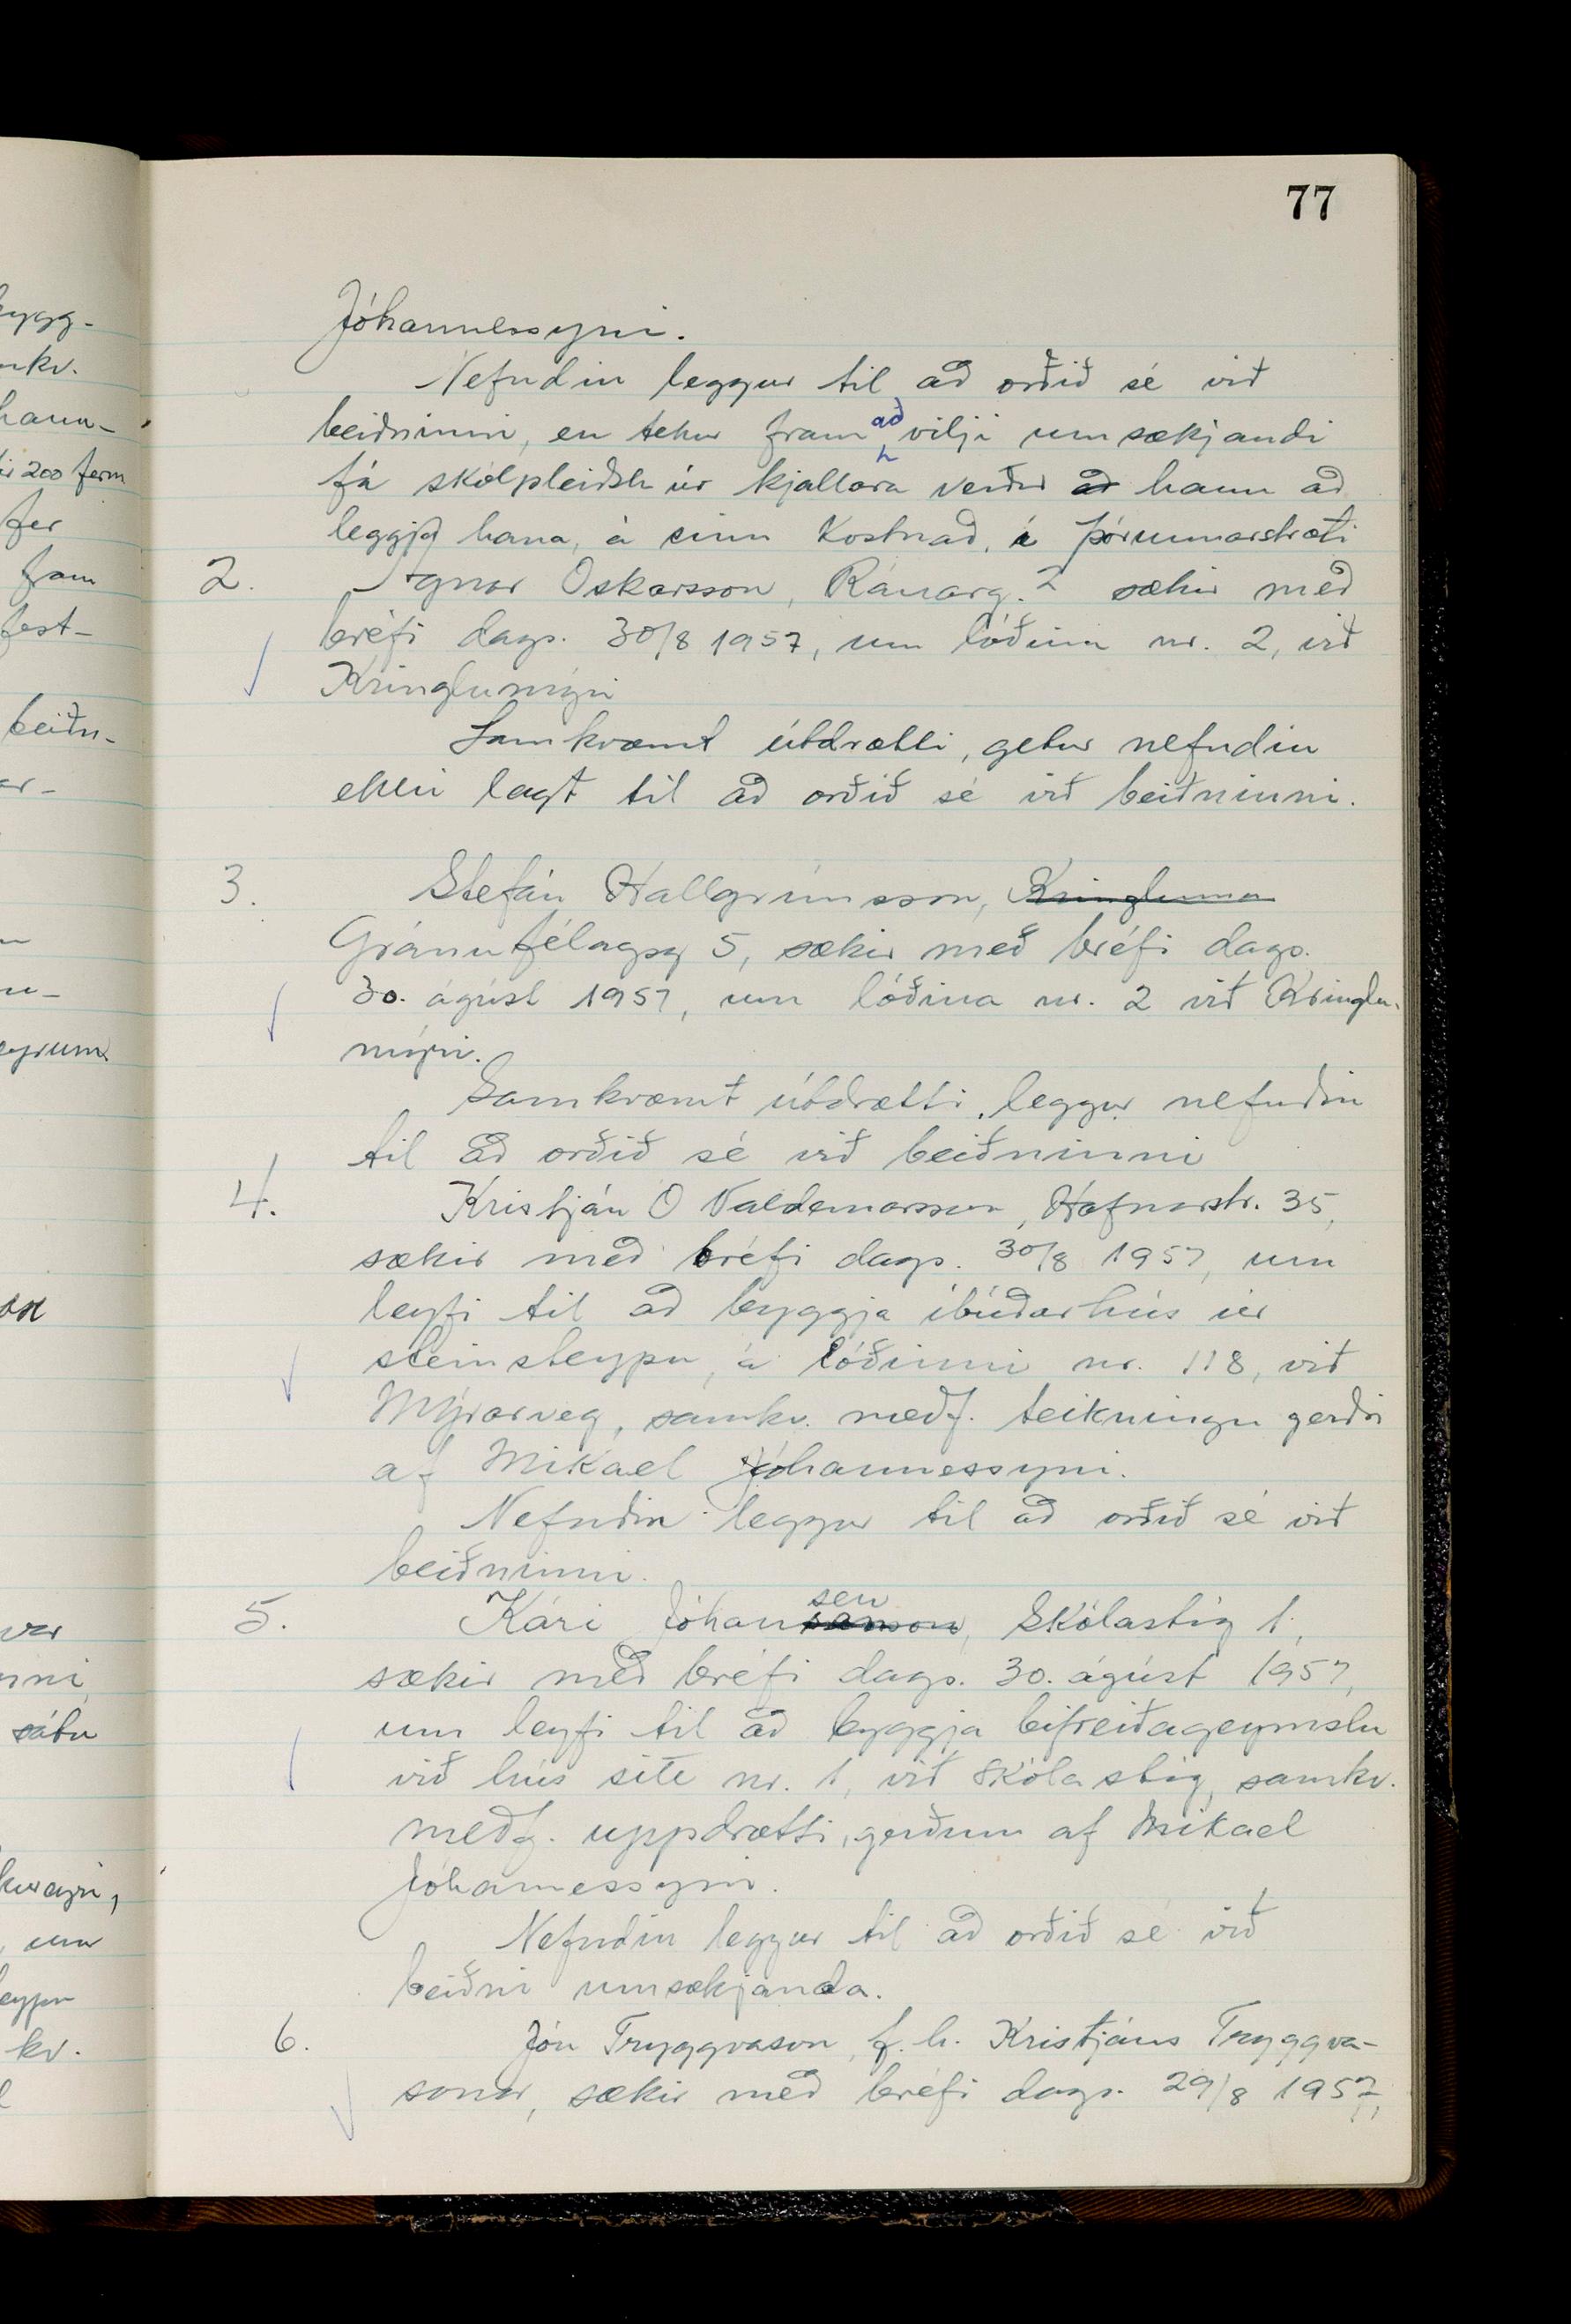 77
Jóhannessyni.
Nefndin leggur til að orðið sé við
beiðninni, en tekur fram að vilji umsækjandi
fá skólpleiðslu úr kjallara verður að hann að
leggja hana, á sinn kostnað, í Þórunnarstræti
2. Óskarsson, Ránarg. 2 sækir með
bréfi dags. 30/8 1957, um lóðina nr. 2, við
Kringlumýri
Samkvæmt útdrætti, getur nefndin
ekki lagt til að orðið sé við beiðninni.
3. Stefán Hallgrímsson, Kringluma
Gránufélagsg 5, sækir með bréfi dags.
30. ágúst 1957, um lóðina nr. 2 við Kringlu-
mýri.
Samkvæmt útdrætti, leggur nefndin
til að orðið sé við beiðninni
4. Kristján O Valdemarsson, Hafnarstr. 35,
sækir með bréfi dags. 30/8 1957, um
leyfi til að byggja íbúðarhús úr
steinsteypu, á lóðinni nr. 118, við
Mýrarveg, samkv. meðf. teikningu gerðri
af Mikael Jóhannessyni.
Nefndin leggur til að orðið sé við
beiðninni.
5. Kári Jóhansen, Skólastíg 1,
sækir með bréfi dags. 30. ágúst 1957,
um leyfi til að byggja bifreiðageymslu
við hús sitt nr. 1, við Skólastíg, samkv.
meðf. uppdrætti, gerðum af Mikael
Jóhannessyni.
Nefndin leggur til að orðið sé við
beiðni umsækjanda.
6. Jón Tryggvason, f. h. Kristjáns Tryggva-
sonar, sækir með bréfi dags. 29/8 1957,